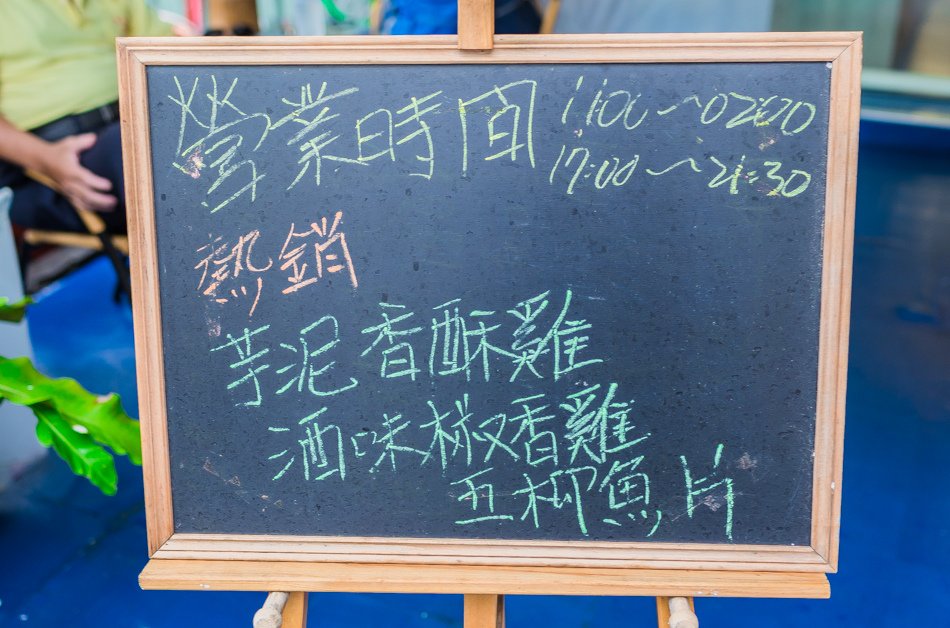 營業時間 11:00~02:00
17:00~21:30
熱銷
芋泥香酥雞
酒味椒香雞
五柳魚片